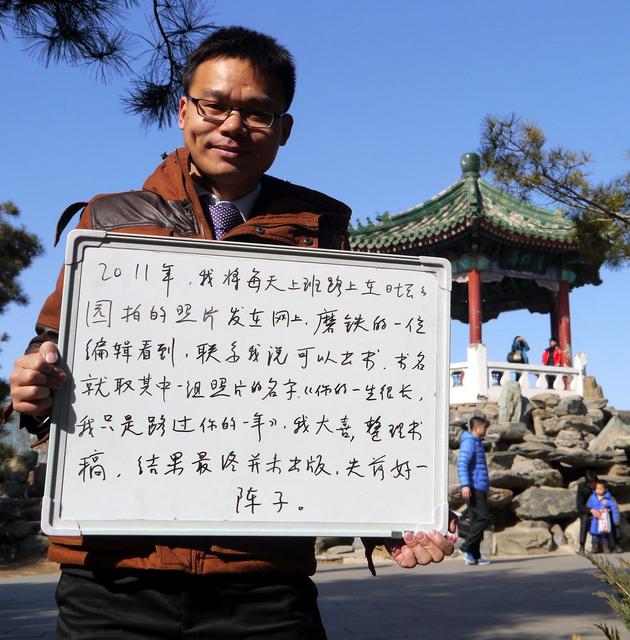 2011年，我将每天上班路上在日坛公
园拍的照片发在网上，磨铁的一位
编辑看到，联系我说可以出书，书名
就取其中一组照片的名字《你的一生很长，
我只是路过你的一年》。我大喜，整理书
稿，结果最终并未出版，失落好一
阵子。